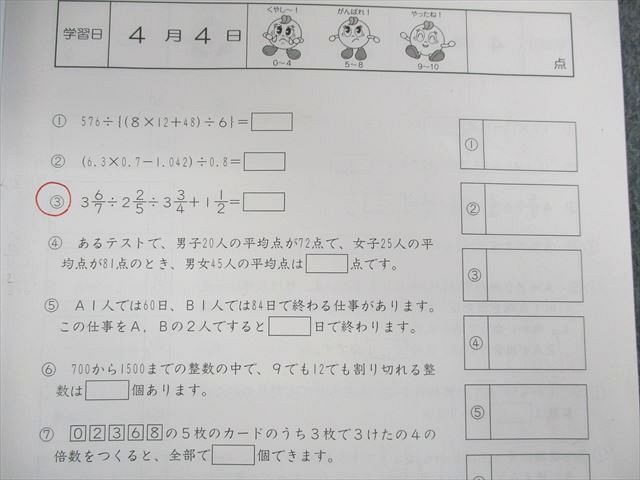 学習日 4月4日 くやし～! がんばれ! やったね! 点
0～4 5～8 9～10
① 576÷{(8×12+48)÷6}=□
② (6.3×0.7－1.042)÷0.8=□
③ 3 6/7÷2 2/5÷3 3/4+1 1/2=□
④ あるテストで、男子20人の平均点が72点で、女子25人の平
均点が81点のとき、男女45人の平均点は□点です。
⑤ A1人では60日、B1人では84日で終わる仕事があります。
この仕事をA，Bの2人ですると□日で終わります。
⑥ 700から1500までの整数の中で、9でも12でも割り切れる整
数は□個あります。
⑦ 02368の5枚のカードのうち3枚で3けたの4の
倍数をつくると、全部で□個できます。
①
②
③
④
⑤